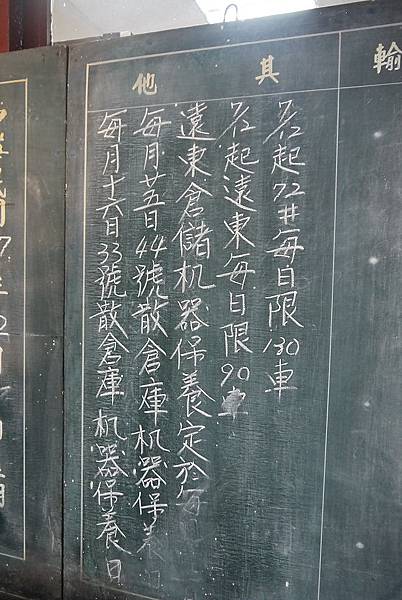 輸
其他
7/2起72#每日限130車
7/2起遠東每日限90車
遠東倉儲机器保養定於每
每月廿五日44號散倉庫机器保養日
每月十六日33號散倉庫机器保養日
中華民國